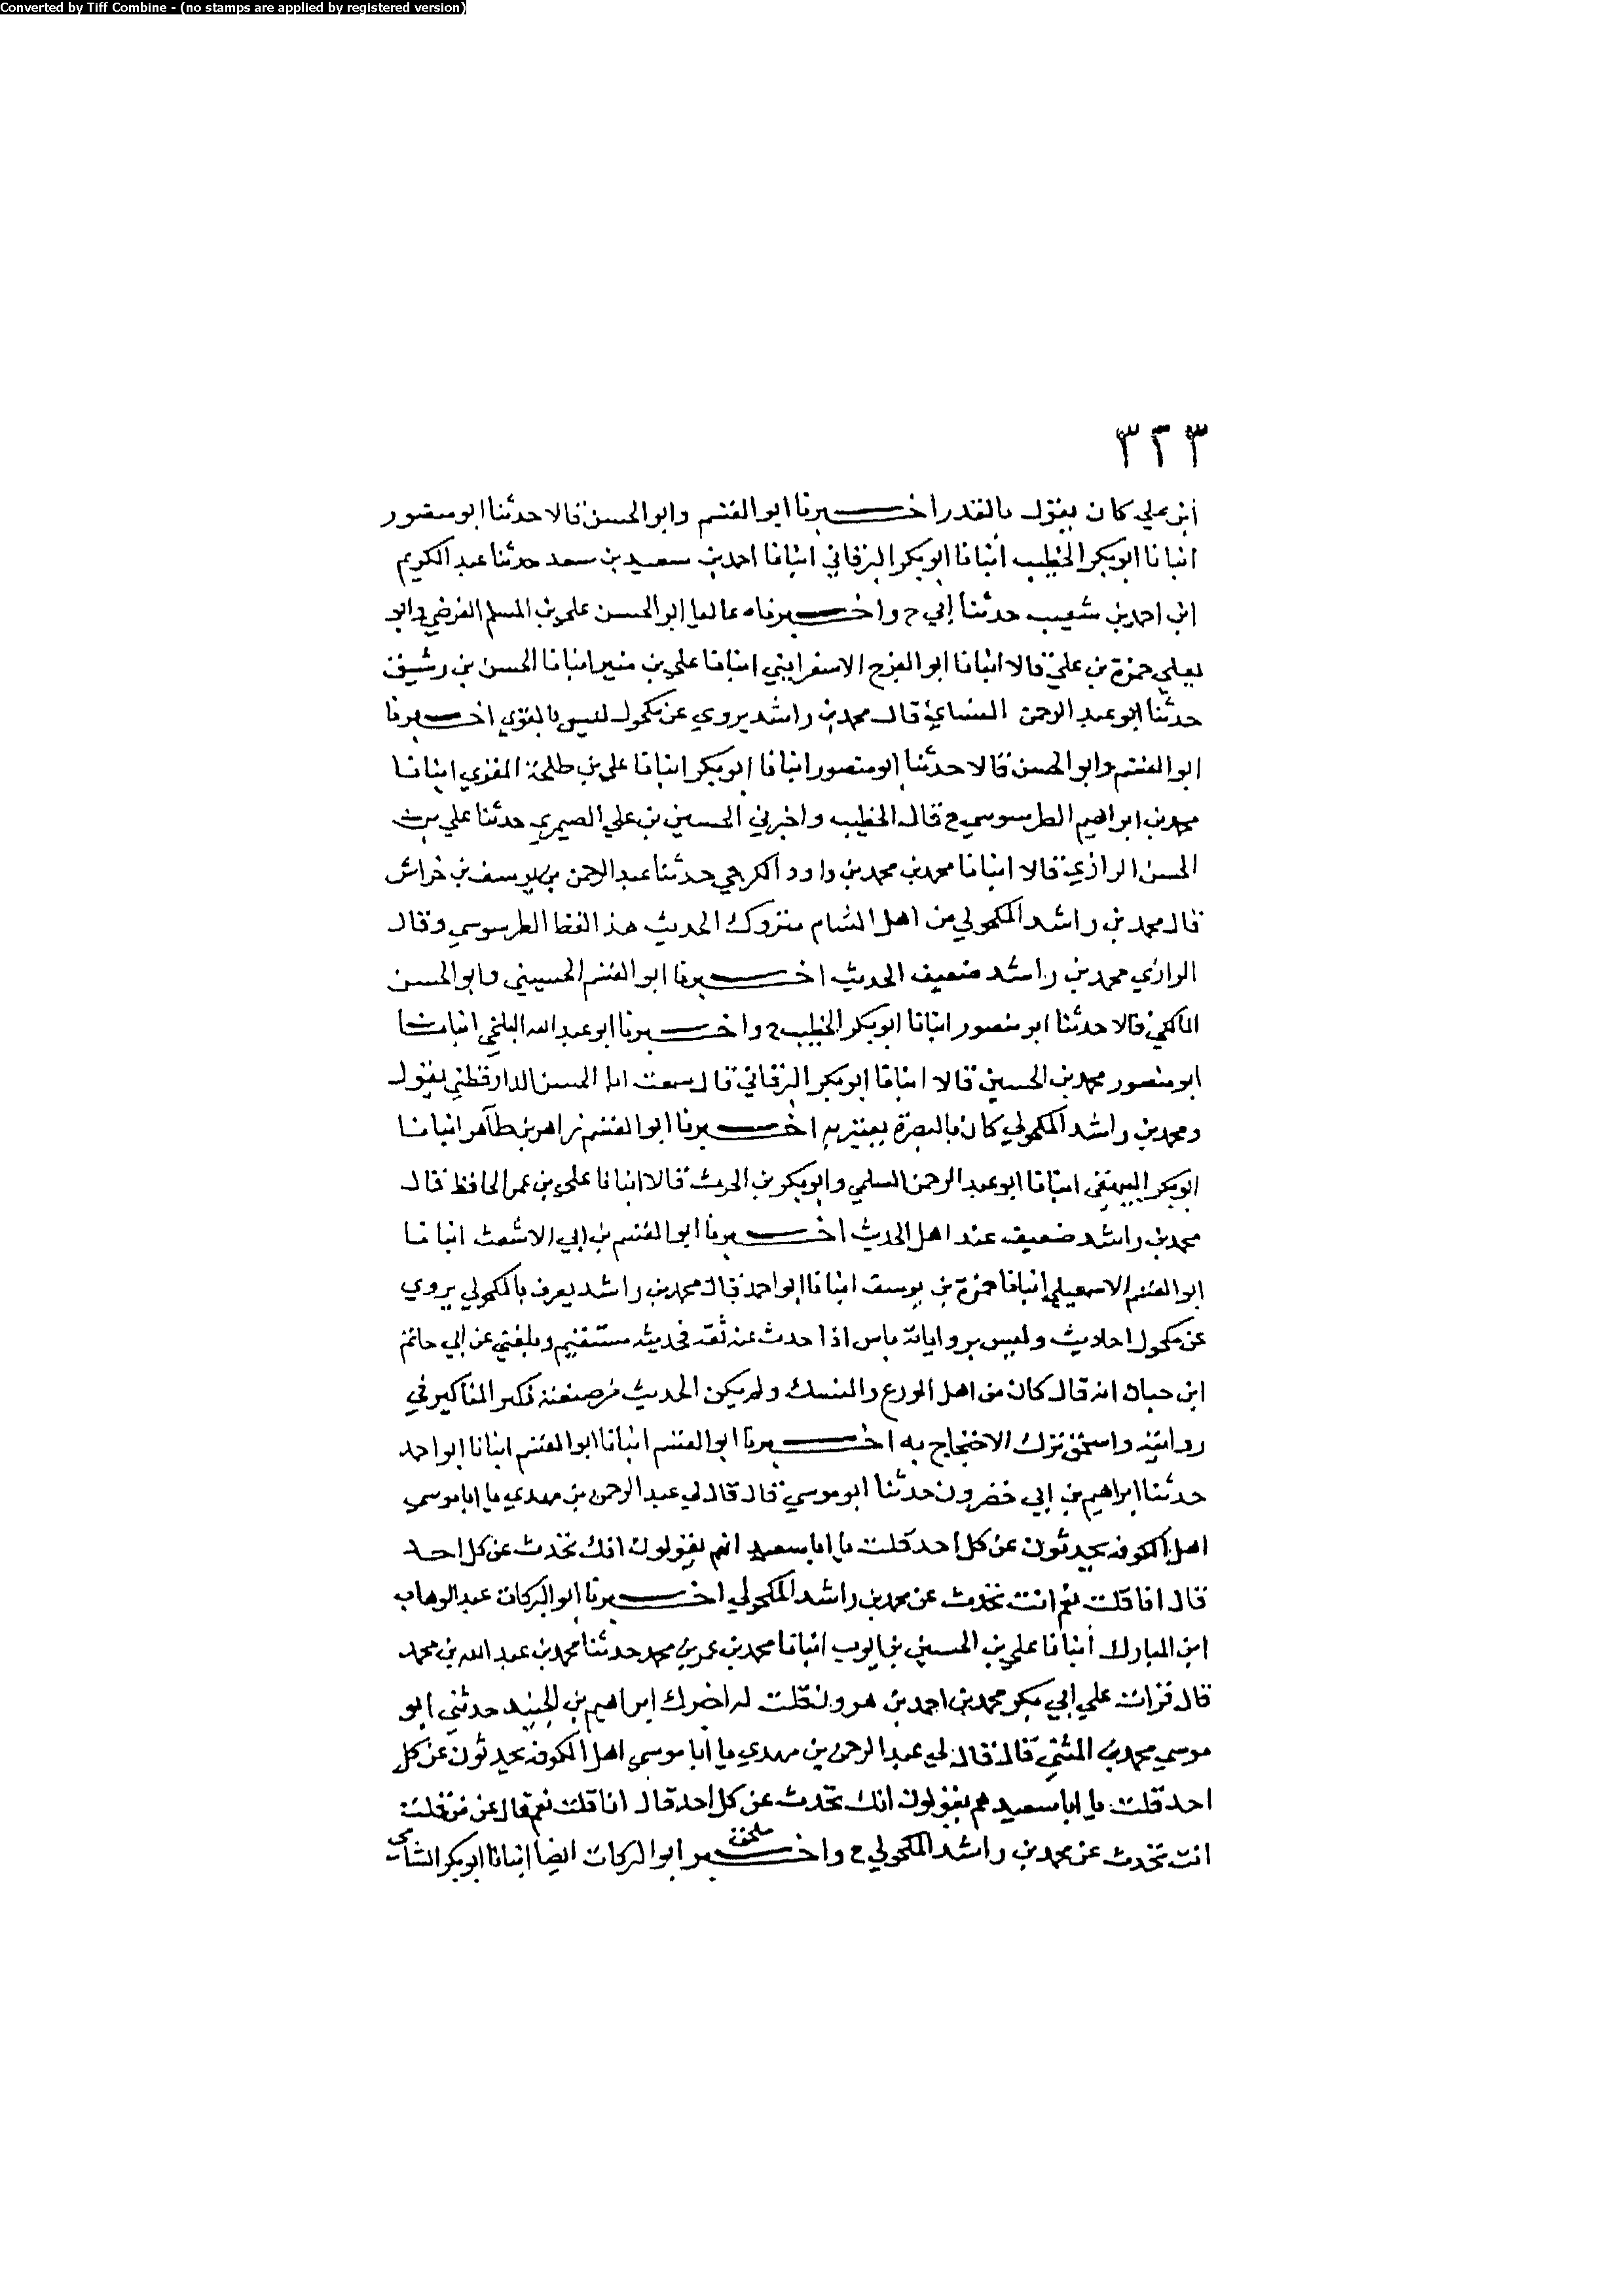 Converted by Tiff Combine - (no stamps are applied by registered version)
٣٢٣
ابن علي كان يقول بالقدر اخبرنا ابو القسم وابو الحسن قالا حدثنا ابو منصور
انبانا ابو بكر الخطيب انبانا ابو بكر البرقاني انبانا احمد بن سعيد بن سعد حدثنا عبد الكريم
ابن احمد بن شعيب حدثنا ابي ح واخبرناه عاليا ابو الحسن علي بن المسلم الفرضي وابو
يعلي حمزة بن علي قالا انبانا ابو الفرج الاسفرايني انبانا علي بن منير انبانا الحسن بن رشيق
حدثنا ابو عبد الرحمن النساي قال محمد بن راشد يروي عن مكحول ليس بالقوي اخبرنا
ابو القسم وابو الحسن قالا حدثنا ابو منصور انبانا ابو بكر انبانا علي بن طلحة المقري انبانا
محمد بن ابراهيم الطرسوسي ح قال الخطيب واخبرني الحسين بن علي الصيمري حدثنا علي بن
الحسن الرازي قالا انبانا محمد بن محمد بن داود الكرجي حدثنا عبد الرحمن بن يوسف بن خراش
قال محمد بن راشد المكحولي من اهل الشام متروك الحديث هذا لفظ الطرسوسي وقال
الرازي محمد بن راشد ضعيف الحديث اخبرنا ابو القسم الحسيني وابو الحسن
المالكي قالا حدثنا ابو منصور انبانا ابو بكر الخطيب ح واخبرنا ابو عبد الله البلخي انبانا
ابو منصور محمد بن الحسين قالا انبانا ابو بكر البرقاني قال سمعت ابا الحسن الدارقطني يقول
ومحمد بن راشد المكحولي كان بالبصرة يعتبر به اخبرنا ابو القسم زاهر بن طاهر انبانا
ابو بكر البيهقي انبانا ابو عبد الرحمن السلمي وابو بكر بن الحرث قالا انبانا علي بن عمر الحافظ قال
محمد بن راشد ضعيف عند اهل الحديث اخبرنا ابو القسم بن ابي الاشعث انبانا
ابو القسم الاسمعيلي انبانا حمزة بن يوسف انبانا ابو احمد قال محمد بن راشد يعرف بالمكحولي يروي
عن مكحول احاديث وليس برواياته باس اذا حدث عنه ثقة فحديثه مستقيم وبلغني عن ابي حاتم
ابن حبان انه قال كان من اهل الورع والنسك ولم يكن الحديث من صنعته فكثر المناكير في
روايته واستحق ترك الاحتجاج به اخبرنا ابو القسم انبانا ابو القسم انبانا ابو احمد
حدثنا ابراهيم بن ابي خضرون حدثنا ابو موسي قال قال لي عبد الرحمن بن مهدي يا ابا موسي
اهل الكوفه يحدثون عن كل احد قلت يا ابا سعيد انهم يقولون انك تحدث عن كل احد
قال انا قلت نعم انت تحدث عن محمد بن راشد المكحولي اخبرنا ابو البركات عبد الوهاب
ابن المبارك انبانا علي بن الحسين بن ايوب انبانا محمد بن عمر بن محمد حدثنا محمد بن عبد الله بن محمد
قال قرات علي ابي بكر محمد بن احمد بن هرون قلت له اخبرك ابراهيم بن الجنيد حدثني ابو
موسي محمد بن المثني قال قال لي عبد الرحمن بن مهدي يا ابا موسي اهل الكوفه يحدثون عن كل
احد قلت يا ابا سعيد هم يقولون انك تحدث عن كل احد قال انا قلت نعم قال عن من قلت
انت تحدث عن محمد بن راشد المكحولي ح واخبر ابو البركات ايضا انبانا ابو بكر الشامي